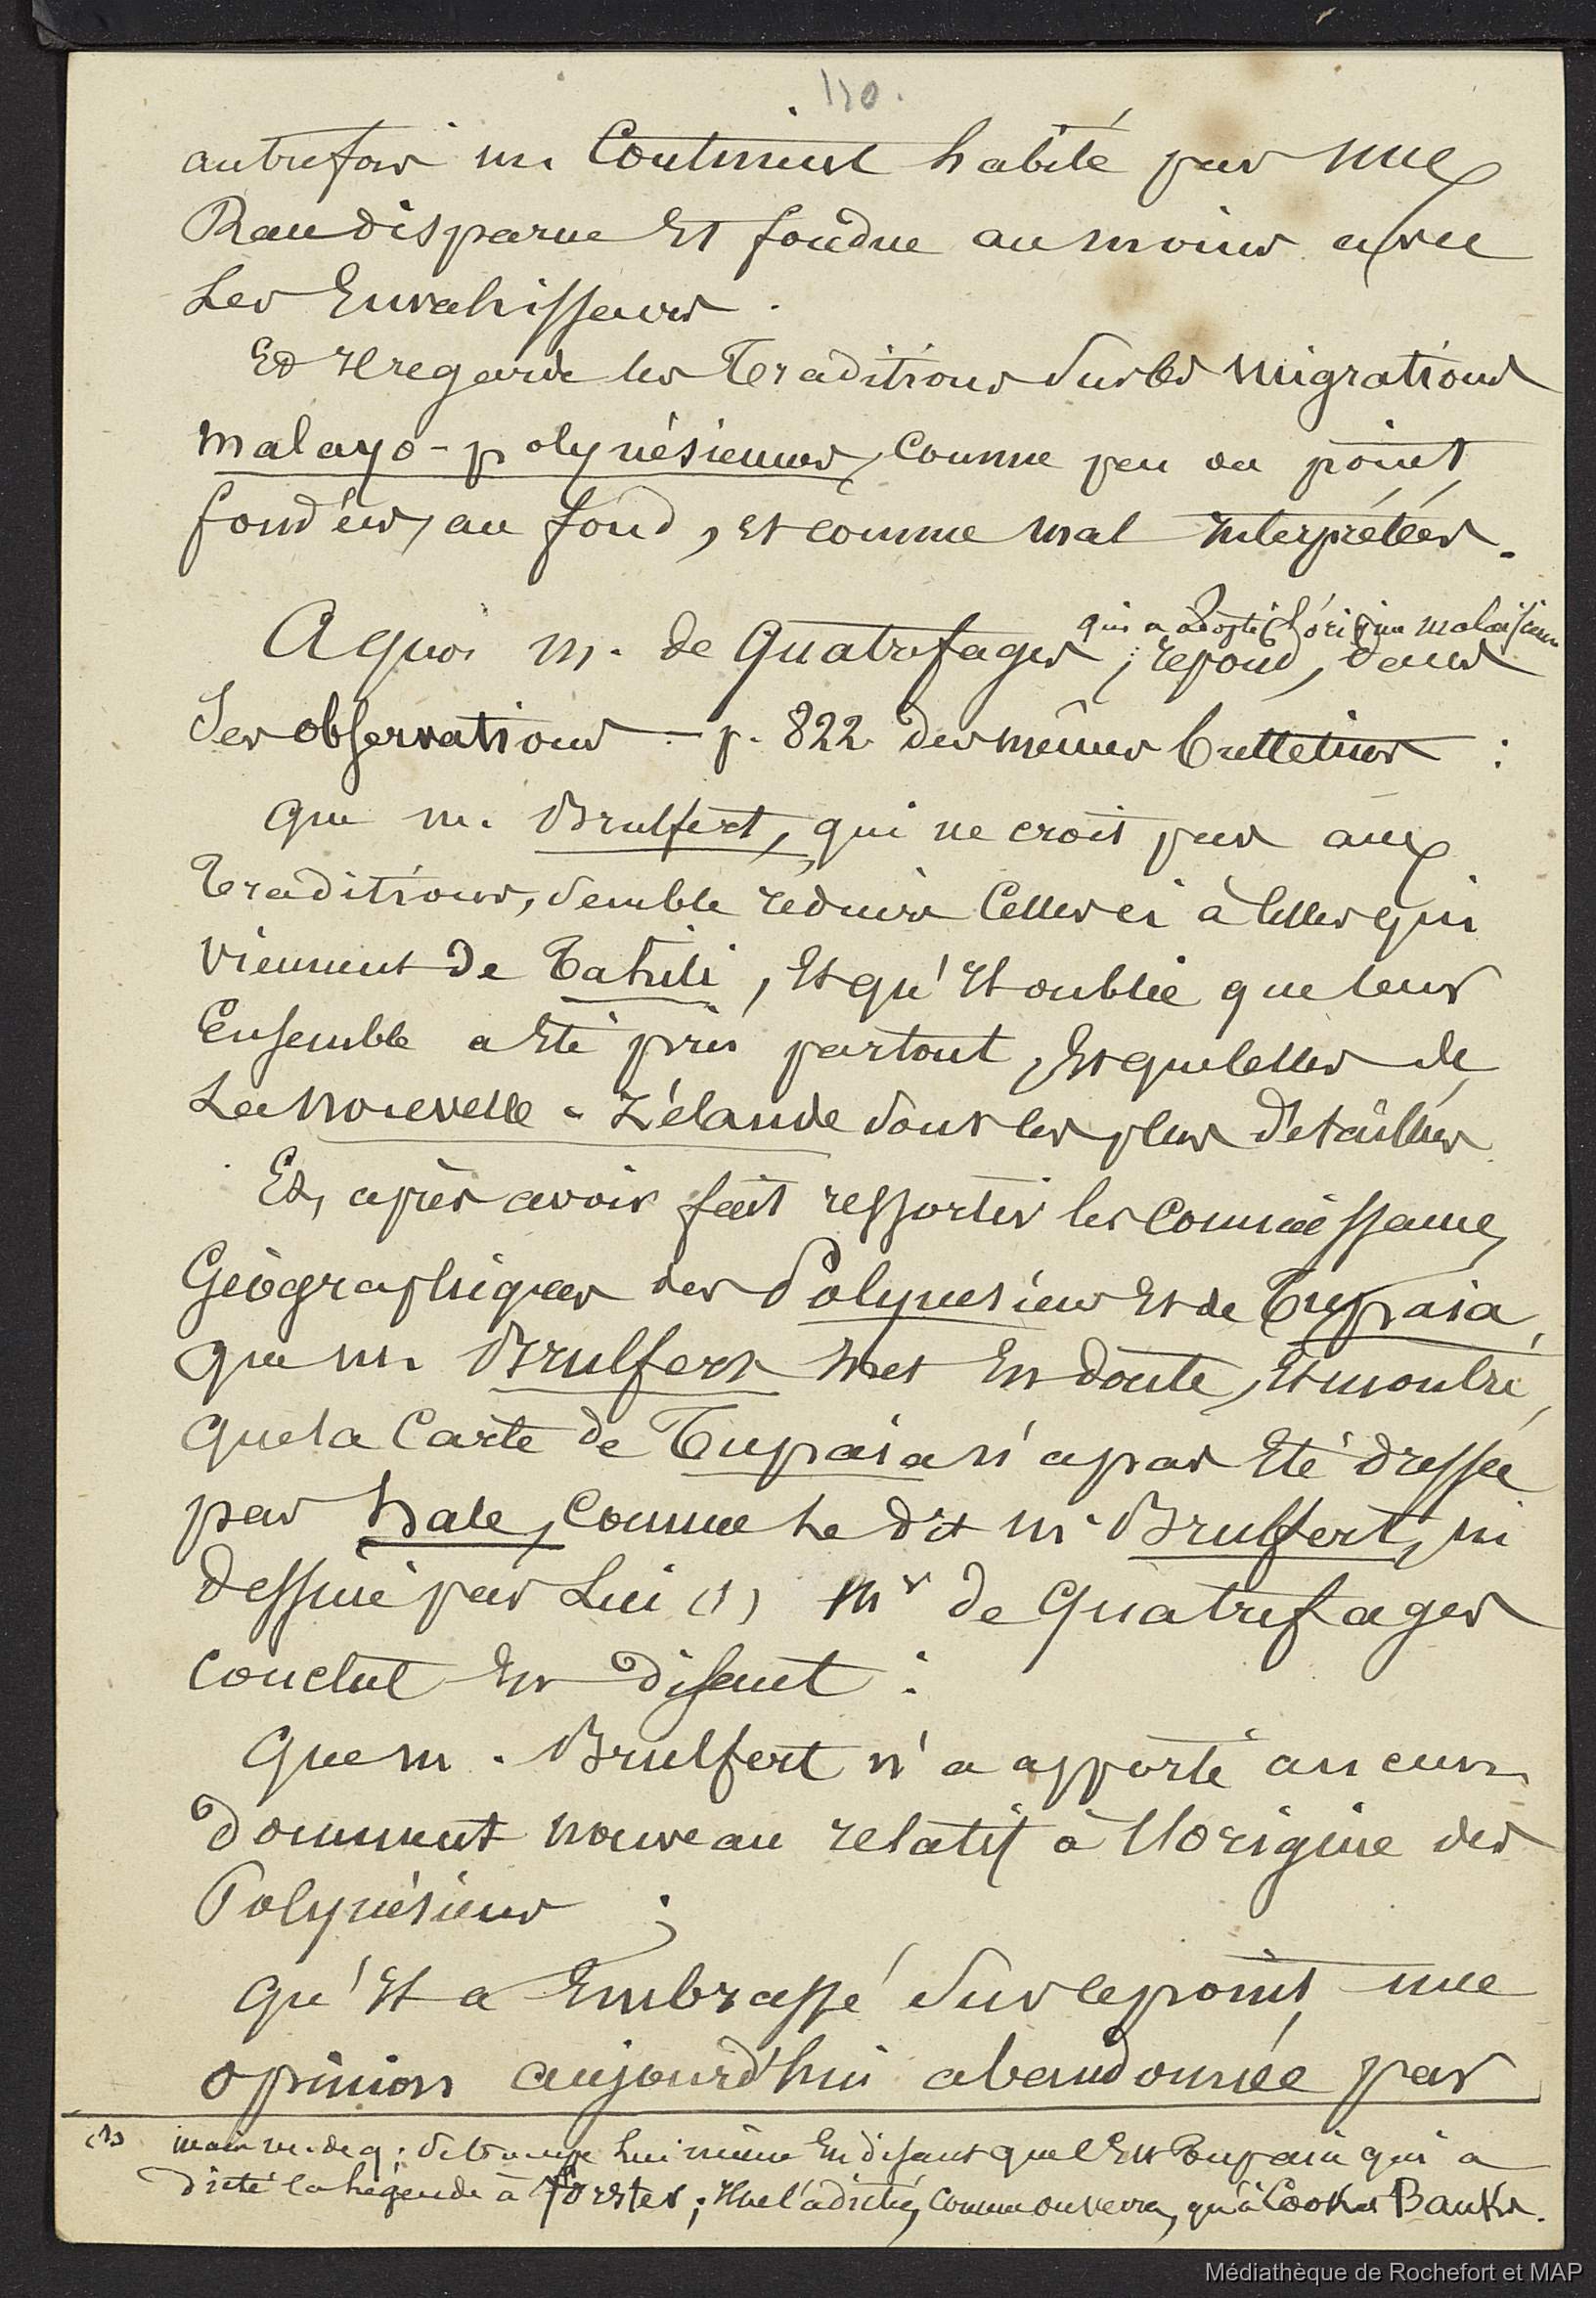 110.
autrefois un Continent habité par une
Race disparue Et fondue au moins avec
Les Envahisseurs.
Et Il regarde les Traditions Sur les Migrations
malayo-polynésiennes, Comme peu ou point
fondées, au fond, Et comme mal Interprétées.
qui a adopté l'origine malaisienne
A quoi M. de Quatrefages, répond, dans
Ses observations - p. 822 des mêmes bulletins :
que m. Brulfert, qui ne croit pas aux
Traditions, Semble réduire Celles ci à Celles qui
viennent de Tahiti, Et qu'Il oublie que leur
Ensemble a Eté pris partout, Et que Celles de
La Nouvelle-Zélande Sont les plus détaillées
Et, après avoir fait ressortir les Connaissances
Géographiques des Polynésiens Et de Tupaia,
que m. Brulfert met En doute, Et montré
que la Carte de Tupaia n'a pas Eté dressée
par Hale, Comme le dit M. Brulfert, ni
dessinée par Lui (1) Mr de Quatrefages
Conclut En disant :
Que m. Brulfert n'a apporté aucun
document nouveau relatif à l'origine des
Polynésiens ;
qu'Il a Embrassé Sur ce point, une
opinion aujourd'hui abandonnée par
(1) mais m. de q. Se trompe lui même En disant que c'Est Tupaia qui a
dicté la légende à Forster ; Il ne l'a dictée, Comme on verra, qu'à Cook et Banks.
Médiathèque de Rochefort et MAP